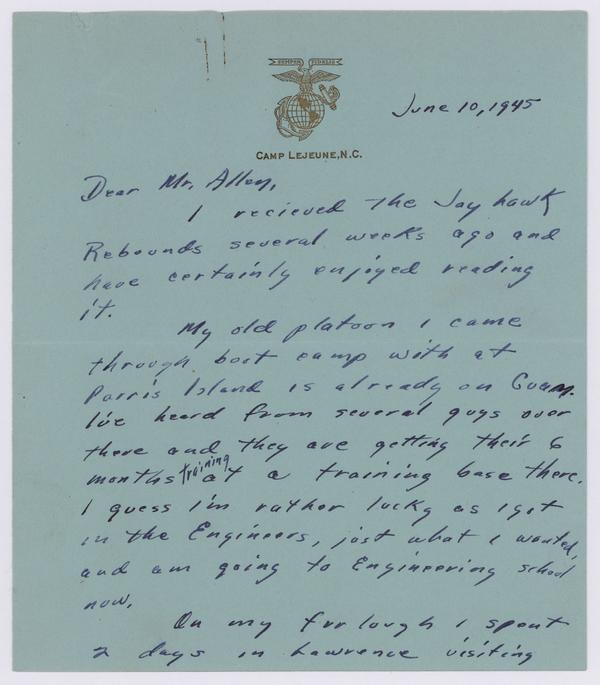 SEMPER FIDELIS
CAMP LEJEUNE, N.C.
June 10, 1945
Dear Mr. Allen,
I recieved the Jay hawk
Rebounds several weeks ago and
have certainly enjoyed reading
it.
My old platoon I came
through boot camp with at
Parris Island is already on Guam.
I've heard from several guys over
there and they are getting their 6
months training at a training base there.
I guess I'm rather lucky as I got
in the Engineers, just what I wanted,
and am going to Engineering school
now.
On my furlough I spent
2 days in Lawrence visiting